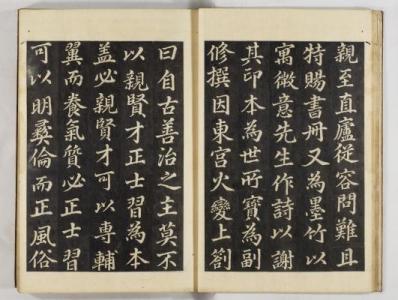 親至直廬従容問難且
特賜書冊又為墨竹以
寓徽意先生作詩以謝
其印本為世所寶為副
修撰因東宮火變上劄
曰自古善治之主莫不
以親賢才正士習為本
盖必親賢才可以專輔
翼而養氣質必正士習
可以明彜倫而正風俗